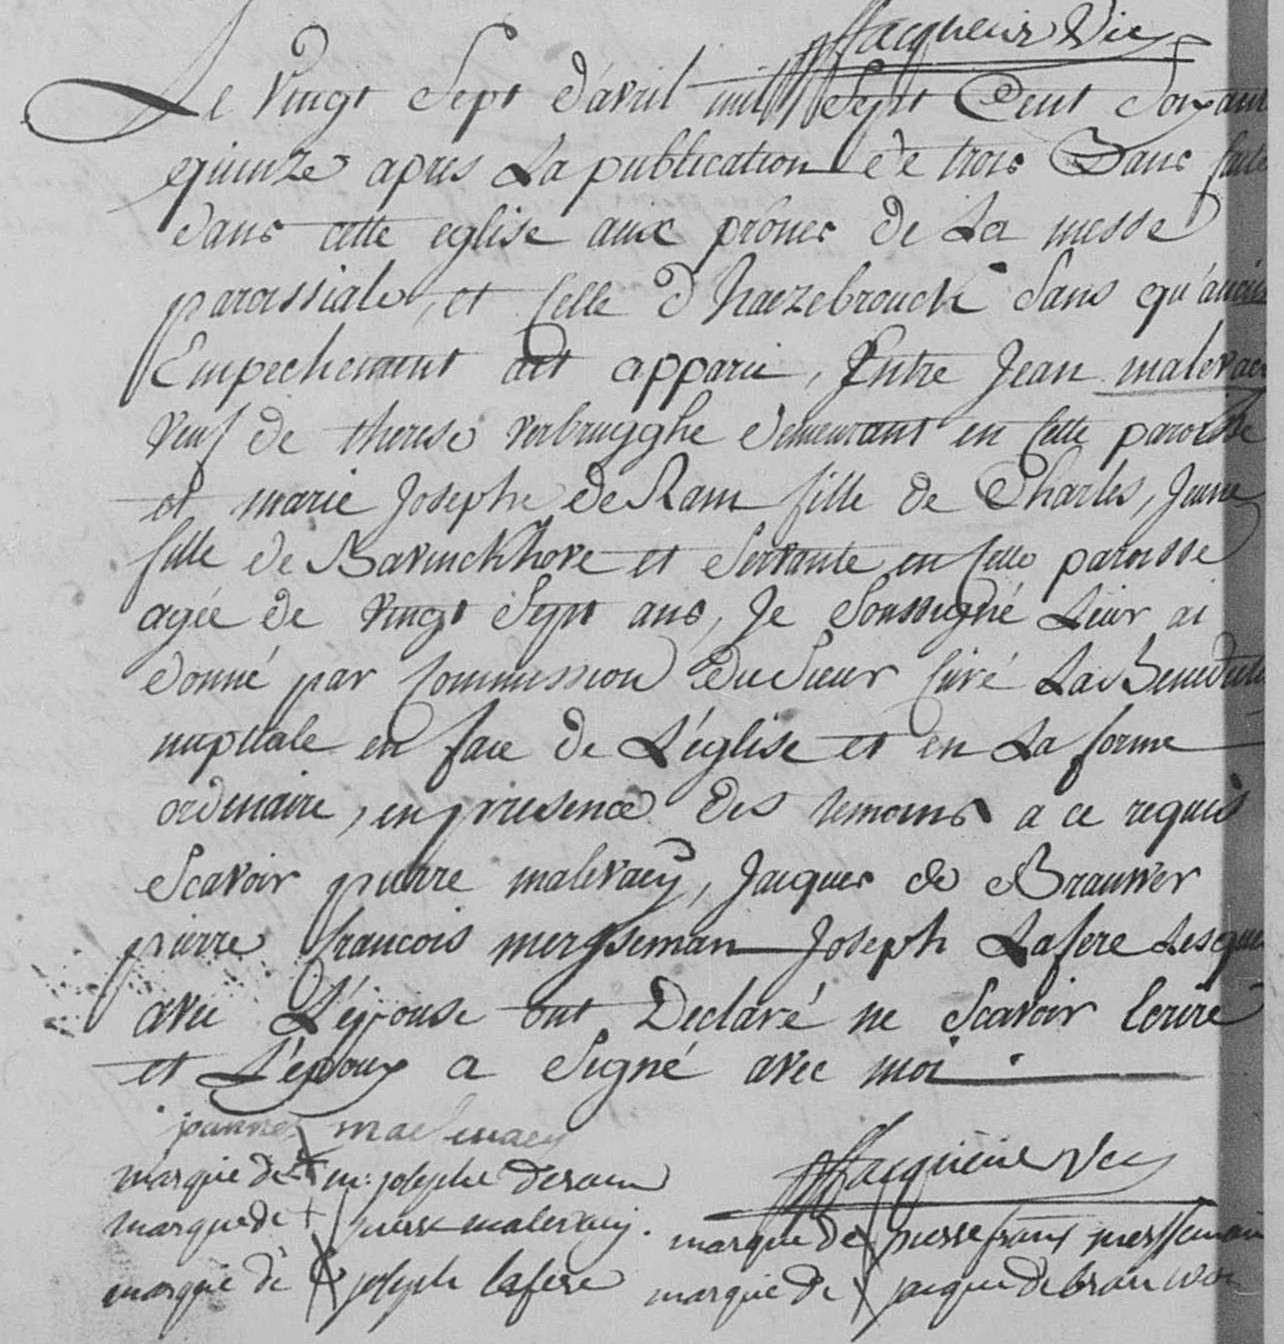 Jacqueur Vic
Le vingt Sept d'avril mil Sept Cent Soixante
quinze apres La publication de trois Bans faite
dans cette eglise aux prônes de La messe
paroissiale, et Celle d'hazebrouck Sans qu'aucun
Empechement ait apparu, Entre Jean malevaey
veuf de therese verbrugghe demeurant en Cette paroisse
et marie Josephe de Ram fille de Charles, Jeune
fille de Bavinckhove et Servante en Cette paroisse
agée de vingt Sept ans, Je Soussigné Leur ai
donné par Commission du Sieur Curé La Benediction
nuptiale en face de L'église et en La forme
ordinaire, en presence des temoins a ce requis
Scavoir pierre malevaey, Jacques de Brauwer
pierre francois mersseman Joseph Lafere Lesquels
avec L'épouse ont Declaré ne Scavoir Ecrire
et L'epoux a Signé avec moi
joannes malevaey
marque de m: josephe deram
Jacqueur Vic
marque de pierre malevaey.
marque de pierre frans mersseman
marque de joseph lafere
marque de jacque de brauwer